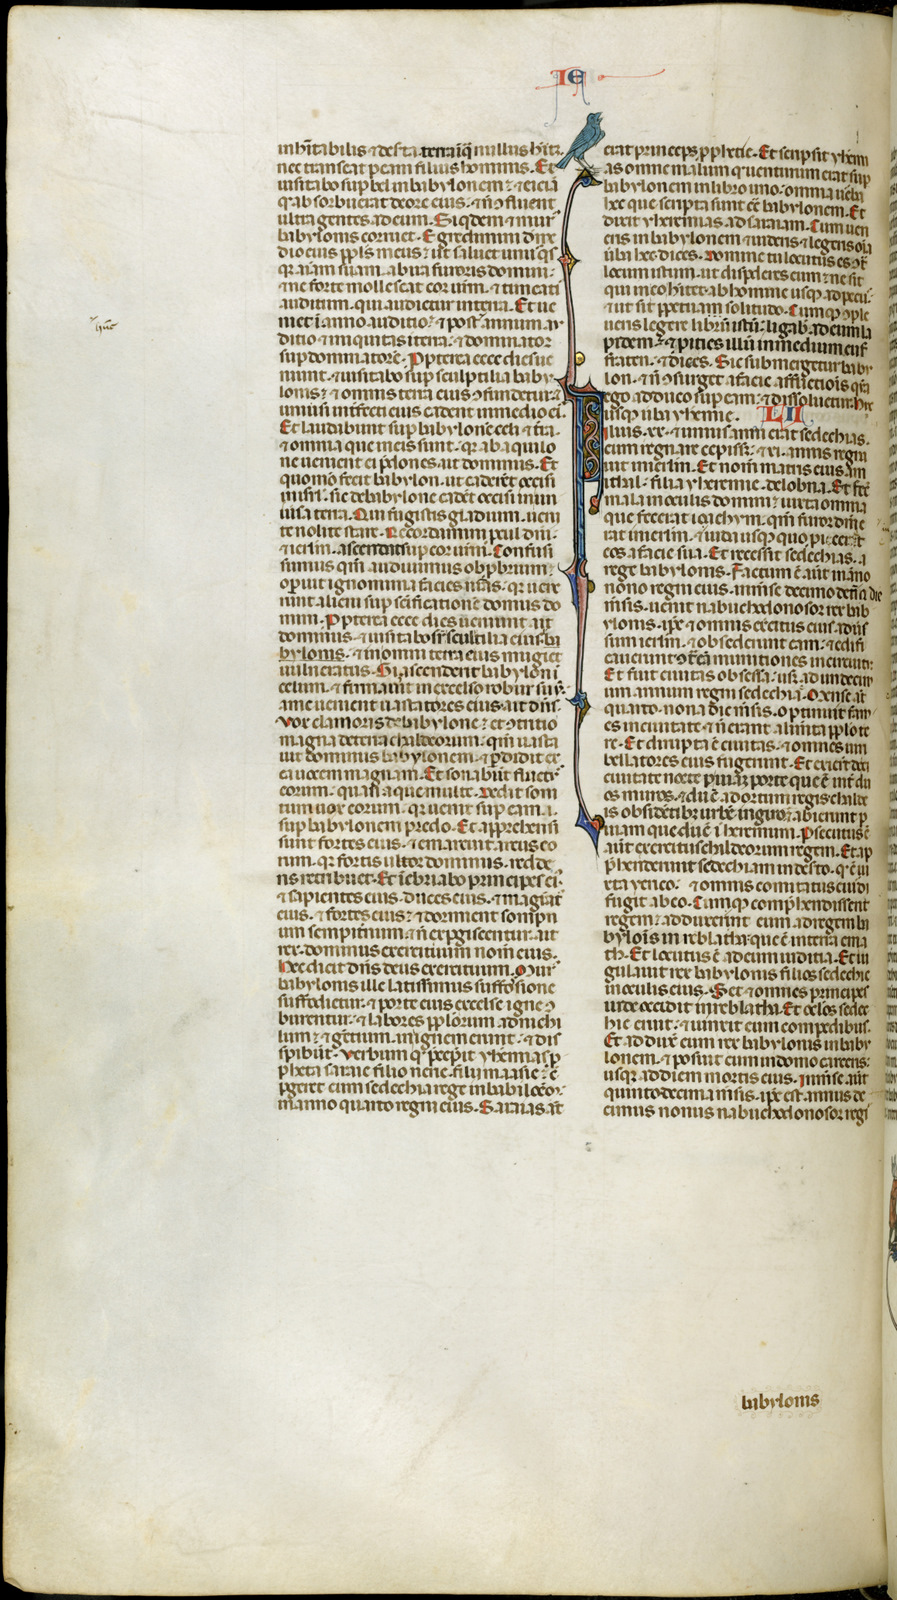 IE
inh̄itabilis ⁊ desta. terra ī q̄ nullus hītꝫ.
nec transeat p eam filius hominis. Et
uisitabo sup bel in babylonem ⁊ eiciā
qd absorbuerat de ore eius. ⁊ n̄ ꝯfluent
ultra gentes ad eum. Siqdem ⁊ mur
babylonis corruet. Egredimini de
dio eius ppls meus: ut saluet unusqs
aīam suam. ab ira furoris domini.
⁊ ne forte mollescat cor urm. ⁊ timeati
auditum. qui audietur in terra. Et ue
niet ī anno auditio. ⁊ post annum au
ditio ⁊ iniquitas in terra. ⁊ dominator
sup dominatorē. Ppterea ecce dies ue
niunt. ⁊ uisitabo sup sculptilia baby
lonis: ⁊ omnis terra eius ꝯfundetur. ⁊
uniuersi infecti eius cadent in medio ei
Et laudabunt sup babylonē celi ⁊ tra
⁊ omnia que in eis sunt. qr ab aquilo
ne uenient ei p̄dones. ait dominus. Et
quomō fecit babylon. ut caderēt occisi
in isrl. sic de babylone cadēt occisi in uni
uersa terra. Qui fugistis gladium. ueni
te nolite stare. Recordamini pcul dni.
⁊ ierlm. ascendat sup cor urm. Confusi
sumus qm̄ audiuimus obpbrium.
opuit ignominia facies nr̄as. qr uene
runt alieni sup scificationē domus do
mini. Ppterea ecce dies ueniunt ait
dominus. ⁊ uisitabo sr sculptilia eius ba
bylonis. ⁊ in omni terra eius mugiet
uulneratus. Si ascenderit babylon ī
celum. ⁊ firmauit in excelso robur suū.
a me uenient uastatores eius. ait dn̄s.
Vox clamoris de babylone: ⁊ ꝯtritio
magna de terra chaldeorum. qm̄ uasta
uit dominus babylonem. ⁊ pdidit ex
ea uocem magnam. Et sonabūt fluct
eorum. quasi aque multe. dedit soni
tum uox eorum. qr uenit sup eam. i.
sup babylonem predo. Et apprehensi
sunt fortes eius. ⁊ emarcuit arcus eo
rum. qr fortis ultor dominus. redde
ns retribuet. Et īebriabo principes ei
⁊ sapientes eius. duces eius. ⁊ magrat
eius. ⁊ fortes eius: ⁊ dormient sompn
um sempitnum. ⁊ n̄ expgiscentur. ait
rex. dominus exercituum nom̄ eius.
Hec dicit dn̄s deus exercituum. Mur
babylonis ille latissimus suffosione
suffodietur. ⁊ porte eius excelse igne ꝯ
burentur. ⁊ labores pplorum ad nichi
lum: ⁊ gētium. in ignem erunt. ⁊ dis
spibūt. Verbum qd p̄cepit yheremias p
pheta saraie filio nerie. filii maasie: cū
pgeret cum sedechia rege in babilonē.
in anno quarto regni eius. Saraias at
erat princeps pphetie. Et scripsit yherm
ias omne malum qd uenturum erat sup
babylonem in libro uno: omnia uerba
hec que scripta sunt ꝯt babylonem. Et
dixit yheremias ad saraiam. Cum uen
eris in babylonem ⁊ uideris ⁊ legeris oīa
uba hec dices. Domine tu locutus es ꝯt
locum istum. ut dispderes eum: ne sit
qui in eo hītet ab homine usq ad pecus.
⁊ ut sit ppetua solitudo. Cumq ꝯple
ueris legere librū istū. ligab ad eum la
pidem. ⁊ pities illū in medium euf
fraten. ⁊ dices. Sic submergetur baby
lon. ⁊ n̄ ꝯsurget a facie afflictiōis qm
ego adduco sup eam. ⁊ dissoluetur. Huc
usq uba yheremie. LII
Filius. xx. ⁊ unius anni erat sedechias.
cum regnare cepiss: ⁊ xi. annis regna
uit in ierlm. Et nom̄ matris eius am
ithal. filia yheremie. de lobna. Et fec
mala in oculis domini: iuxta omnia
que fecerat ioachym. qm̄ furor dn̄i e
rat in ierlm. ⁊ in iuda usq quo piceret
eos a facie sua. Et recessit sedechias. a
rege babylonis. Factum ē aūt in āno
nono regni eius. in mense decimo decīa die
mēsis. uenit nabuchodonosor rex bab
ylonis. ipe ⁊ omnis exercitus eius. aduer
sum ierlm. ⁊ obsederunt eam: ⁊ edifi
cauerunt ꝯtra eā munitiones in circuitu
Et fuit ciuitas obsessa: usq ad undecim
um annum regni sedechia. Mense at
quarto. nona die mēsis. optinuit fam
es ciuitatē. ⁊ n̄ erant alimta pplo ter
re. Et dirupta ē ciuitas. ⁊ omnes uiri
bellatores eius fugerunt. Et exierūt de
ciuitate nocte p uiam porte que ē int du
os muros. ⁊ duc̄ ad ortum regis. chalde
is obsidētibus urbē in giro: ⁊ abierunt p
uiam que duc̄ ī heremum. Psecutus ē
aūt exercitus chaldeorum regem. Et ap
p̄henderunt sedechiam in desto. qd ē iu
xta yerico. ⁊ omnis comitatus eius di
fugit ab eo. Cumq comp̄hendissent
regem: adduxerunt eum ad regem ba
bylonis in reblatha. que ē in terra ema
th. Et locutus ē ad eum iudicia. Et iu
gulauit rex babylonis filios sedechie
in oculis eius. Sed ⁊ omnes principes
iude occidit in reblatha. Et oclos sedec
hie eruit. ⁊ uinxit eum compedibus.
Et adduxit eum rex babylonis in baby
lonem. ⁊ posuit eum in domo carceris:
usq ad diem mortis eius. In mense aūt
quinto decima mēsis. ipe est annus de
cimus nonus nabuchodonosor regi
babylonis